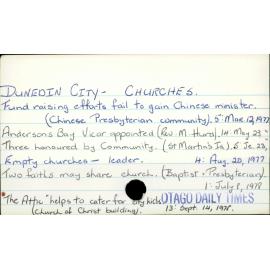 DUNEDIN CITY - CHURCHES.
Fund raising efforts fail to gain Chinese minister.
(Chinese Presbyterian community). 5: Mar 12, 1977
Andersons Bay Vicar appointed (Rev M. Hurst). 14: May 23 "
Three honoured by Community. (St Martin's Is.). 5 Je. 23,
Empty churches - leader. 4: Aug. 20, 1977
Two faiths may share church. (Baptist & Presbyterian)
1: July 8, 1978
"The Attic" helps to cater for city kids OTAGO DAILY TIMES
(Church of Christ building). 13: Sept. 14, 1978.